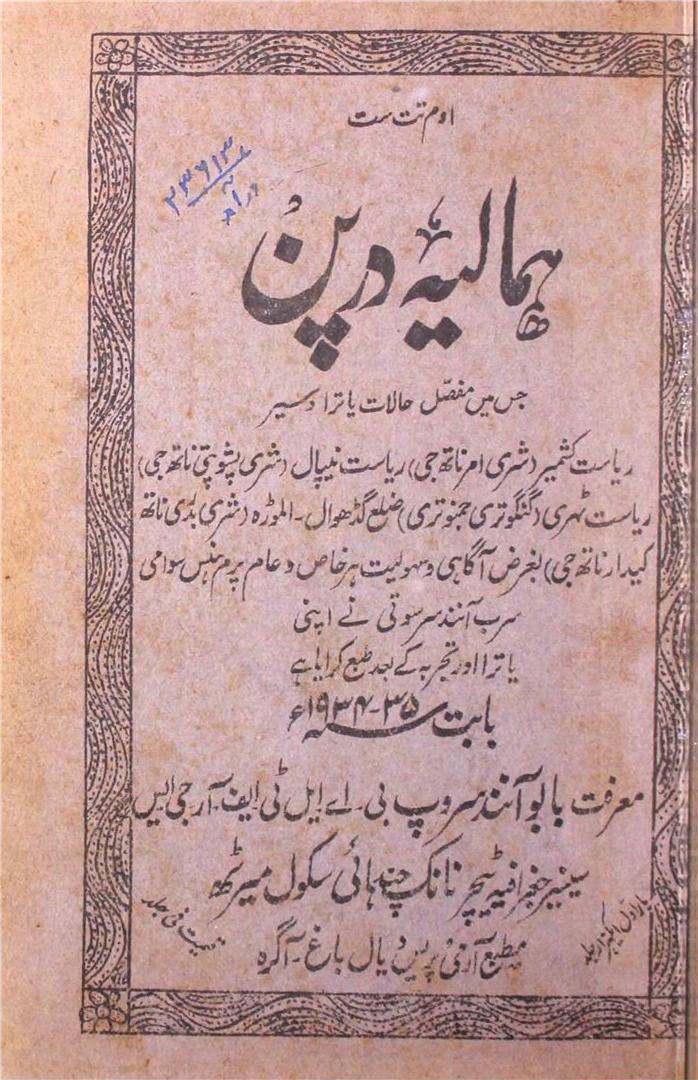 اوم تت ست
۲۳۶۱۳
ہمالیہ درپن
جس میں مفصّل حالات یاترا و سیر
ریاست کشمیر (شری امرناتھ جی) ریاست نیپال (شری پشوپتی ناتھ جی)
ریاست ٹہری (گنگوتری جمنوتری) ضلع گڈھوال۔ الموڑہ (شری بدری ناتھ
کیدارناتھ جی) بغرض آگاہی و سہولیت ہر خاص و عام پرم ہنس سوامی
سرب آنند سرسوتی نے اپنی
یاترا اور تجربہ کے بعد طبع کرایا ہے
بابت سنہ ۳۵-۱۹۳۴ء
معرفت بابو آنند سروپ بی۔ اے ایل ٹی ایف۔ آر جی ایس
سینیر جغرافیہ ٹیچر نانک چند ہائی سکول میرٹھ
بار اول ایکہزار جلد
قیمت فی جلد
مطبع آرمی پریس یال باغ۔ آگرہ